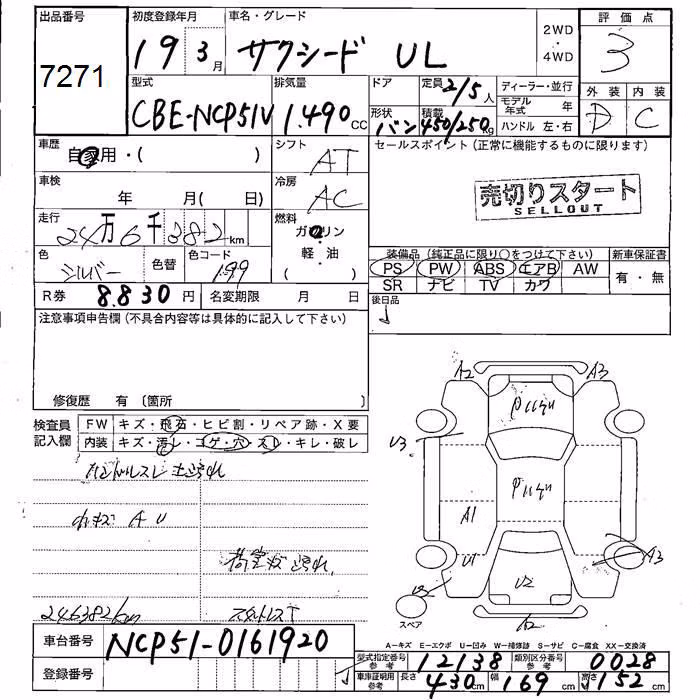 出品番号 初度登録年月 車名・グレード 2WD 評価点
7271 19 3月 サクシード UL ・4WD 3
型式 排気量 ドア 定員 2/5人 ディーラー・並行 外装 内装
CBE-NCP51V 1.490cc 形状 バン 積載 450/250kg モデル年式 年 D C
ハンドル 左・右
車歴 シフト セールスポイント(正常に機能するものに限ります)
自家用・( ) AT
車検 冷房 売切りスタート
年 月( 日) AC SELLOUT
走行 燃料
24万6千382km ガソリン
色 シルバー 色替 色コード 199 ・軽・油 装備品(純正品に限り○をつけて下さい) 新車保証書
PS PW ABS エアB AW 有・無
SR ナビ TV カワ
R券 8.830円 名変期限 月 日 後日品
注意事項申告欄(不具合内容等は具体的に記入して下さい)
修復歴 有〔箇所 〕
検査員記入欄 FW キズ・飛石・ヒビ割・リペア跡・X要
内装 キズ・汚レ・コゲ・穴・スレ・キレ・破レ
A2 A3
U3
A1
U1 A3
U2
スペア
246382km
車台番号 NCP51-0161920
登録番号
A-キズ E-エクボ U-凹み W-補修跡 S-サビ C-腐食 XX-交換済
型式指定番号参考 12138 類別区分番号参考 0028
車庫証明用参考 長さ 430cm 幅 169cm 高さ 152cm